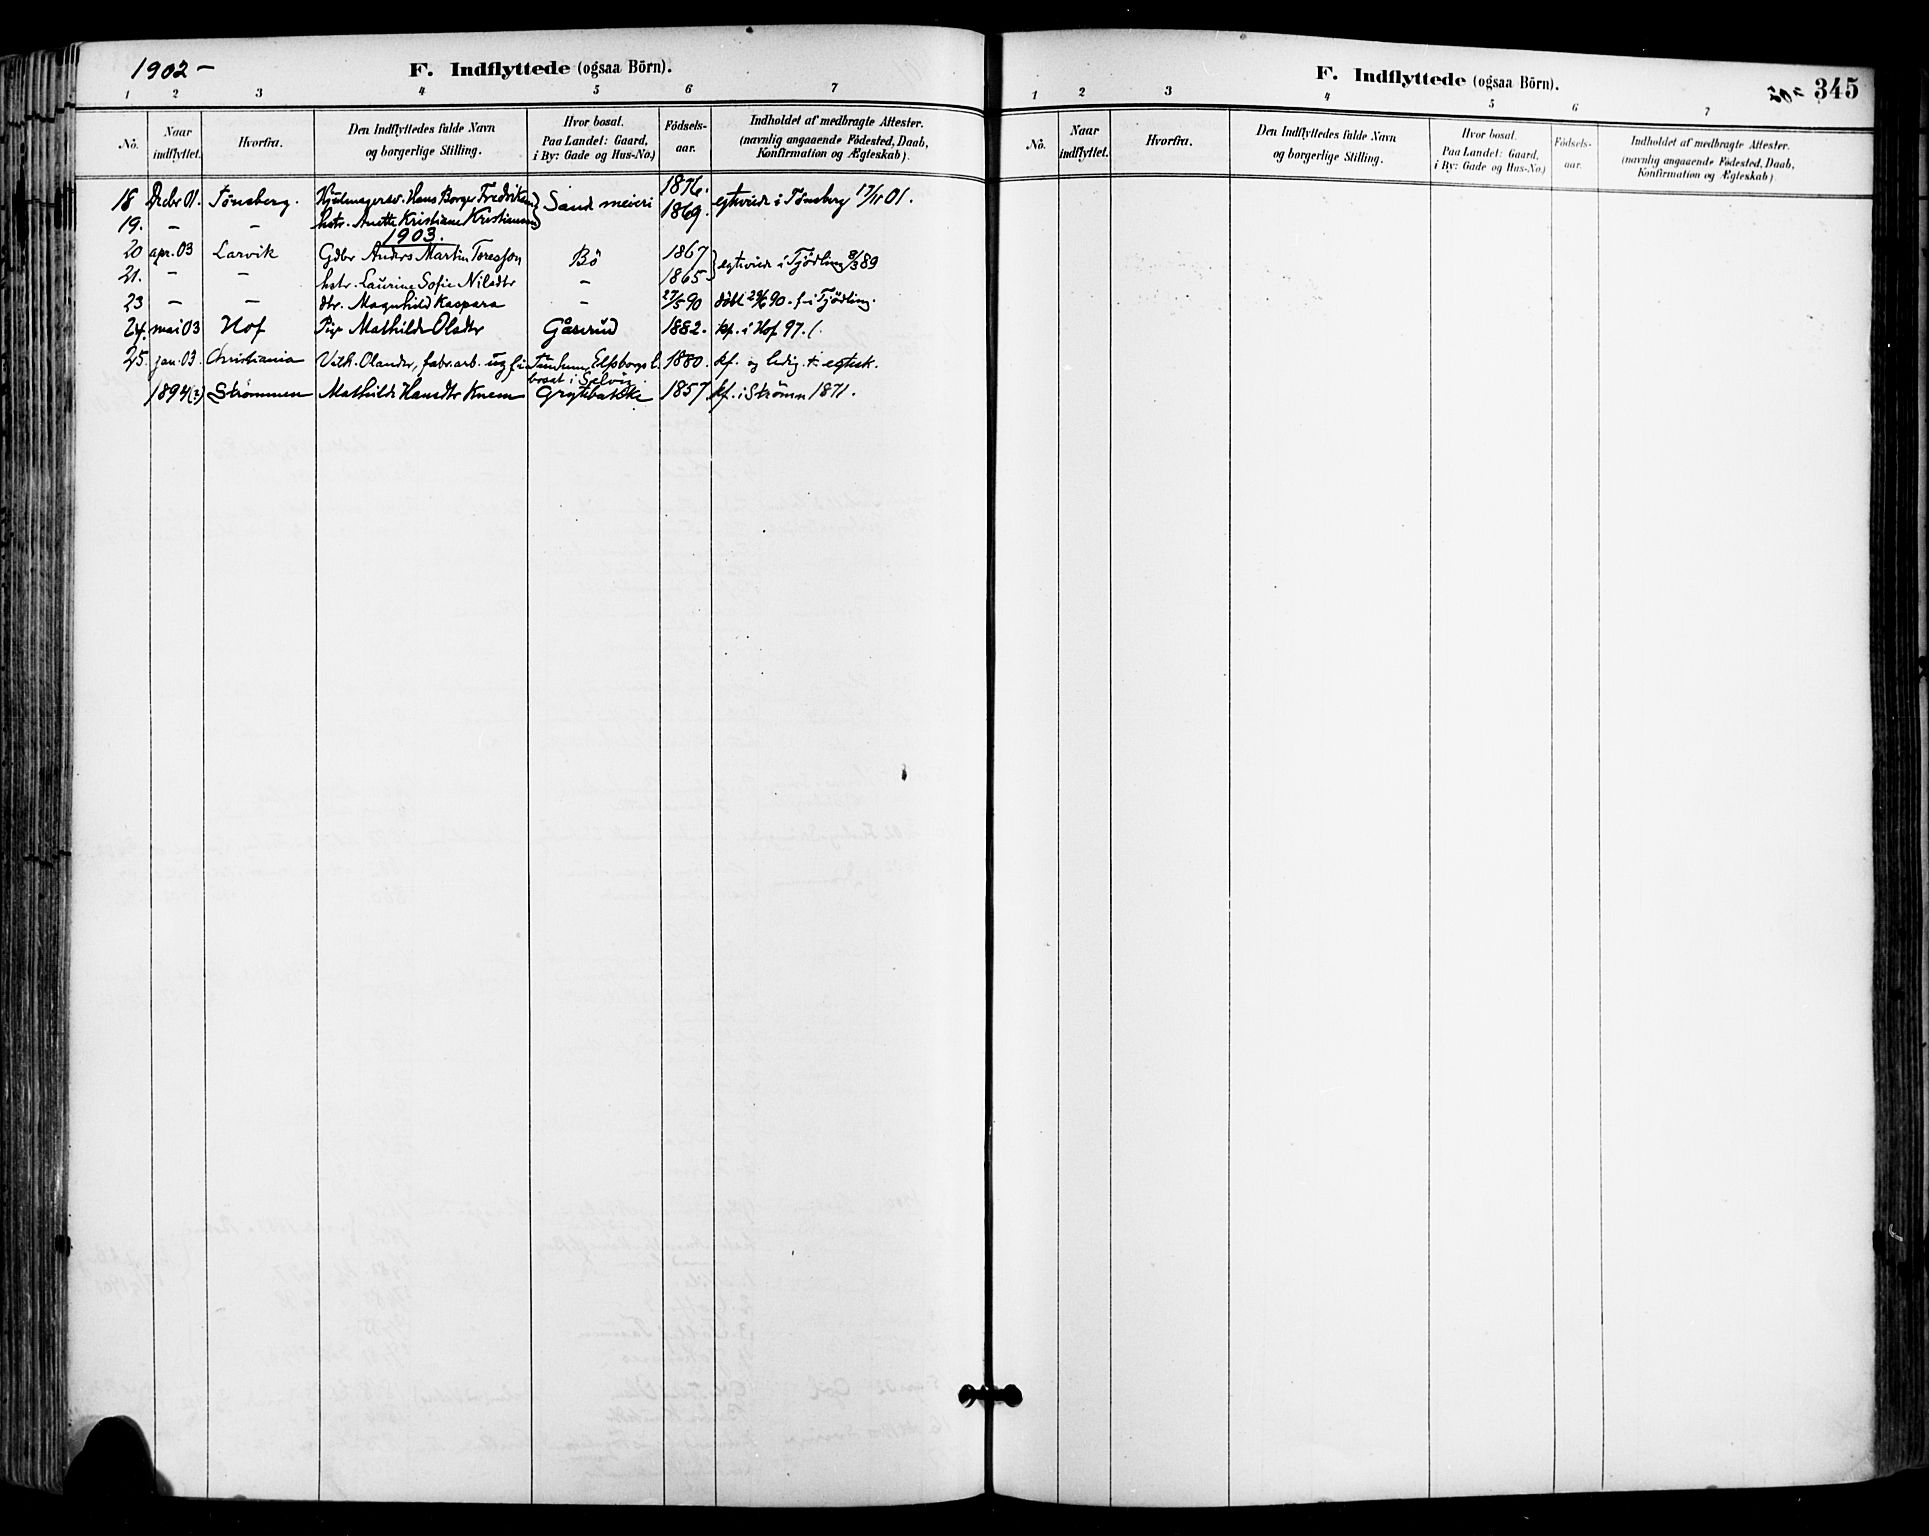 1902 -
F. Indflyttede (ogsaa Börn).
1 2 3 4 5 6 7
No. Naar indflyttet. Hvorfra. Den Indflyttedes fulde Navn og borgerlige Stilling. Hvor bosat. Paa Landet: Gaard, i By: Gade og Hus-No.) Födsels-aar. Indholdet af medbragte Attester. (navnlig angaaende Födested, Daab, Konfirmation og Ægteskab).
18 Dcbr 01. Tønsberg. Hjulmagersv. Hans Borger Fredriksen Sand meieri 1876. egtviede i Tønsberg 17/11 01.
19. – – hstr. Anette Kristiane Kristiansen 1869.
1903.
20 apr. 03 Larvik Gdbr Anders Martin Toresson Bö 1867 egtviede i Tjödling 8/3 89
21. – – hstr. Laurine Sofie Nilsdtr – 1865
23 – – dtr. Magnhild Kaspara – 27/5 90 döbt 29/6 90 i Tjödling.
24. mai 03 Hof Pige Mathilde Olsdtr Gåserud 1882. kf. i Hof 97.
25. jan. 03. Christiania Vilh. Olander, fabr.arb. ug f. i Elfsborgs l. 1880. kf. og ledig t. egtsk.
bosat i Selvig.
1894(?) Strømmen Mathilde Hansdtr Knem Grytebakke 1857 kf. i Strømm 1871.
F. Indflyttede (ogsaa Börn).
345
1 2 3 4 5 6 7
No. Naar indflyttet. Hvorfra. Den Indflyttedes fulde Navn og borgerlige Stilling. Hvor bosat. Paa Landet: Gaard, i By: Gade og Hus-No.) Födsels-aar. Indholdet af medbragte Attester. (navnlig angaaende Födested, Daab, Konfirmation og Ægteskab).